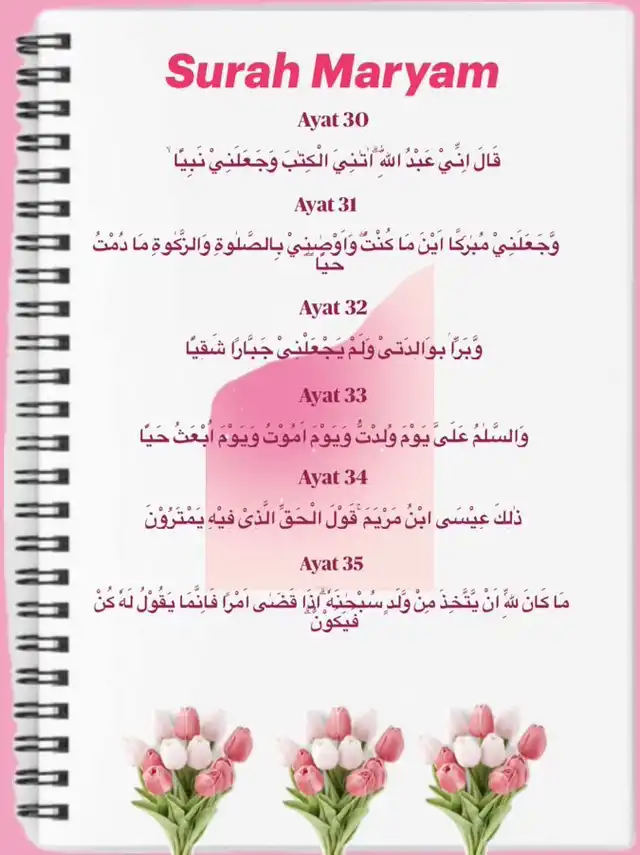 Surah Maryam
Ayat 30
قَالَ اِنِّيْ عَبْدُ اللّٰهِ ۗاٰتٰنِيَ الْكِتٰبَ وَجَعَلَنِيْ نَبِيًّا ۙ
Ayat 31
وَّجَعَلَنِيْ مُبٰرَكًا اَيْنَ مَا كُنْتُۖ وَاَوْصٰنِيْ بِالصَّلٰوةِ وَالزَّكٰوةِ مَا دُمْتُ
حَيًّا ۖ
Ayat 32
وَّبَرًّاۢ بِوَالِدَتِيْ وَلَمْ يَجْعَلْنِيْ جَبَّارًا شَقِيًّا
Ayat 33
وَالسَّلٰمُ عَلَيَّ يَوْمَ وُلِدْتُّ وَيَوْمَ اَمُوْتُ وَيَوْمَ اُبْعَثُ حَيًّا
Ayat 34
ذٰلِكَ عِيْسَى ابْنُ مَرْيَمَ ۚقَوْلَ الْحَقِّ الَّذِيْ فِيْهِ يَمْتَرُوْنَ
Ayat 35
مَا كَانَ لِلّٰهِ اَنْ يَّتَّخِذَ مِنْ وَّلَدٍ سُبْحٰنَهٗ ۗاِذَا قَضٰٓى اَمْرًا فَاِنَّمَا يَقُوْلُ لَهٗ كُنْ
فَيَكُوْنُ ۗ